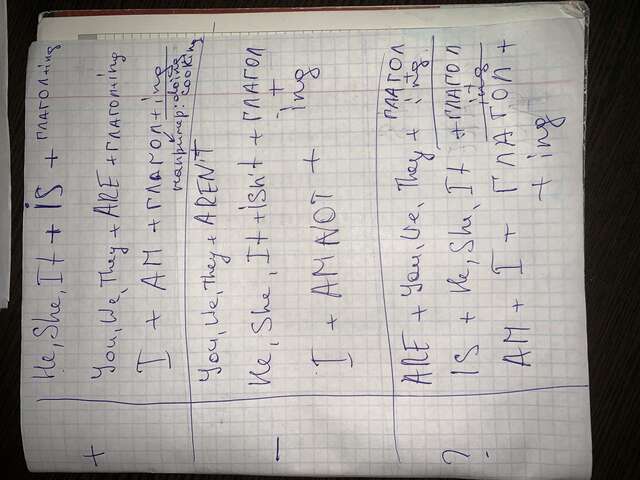 +
He, She, It + iS + глагол+ing
You, We, They + ARE + глагол+ing
I + AM + глагол+ing
например: doing
cooking
-
You, We, They + AREN'T
He, She, It + iSn't + глагол
+
ing
I + AM NOT +
?
ARE + You, We, They + глагол
+
ing
IS + He, She, It + глагол
+
ing
AM + I + ГЛАГОЛ +
+ ing